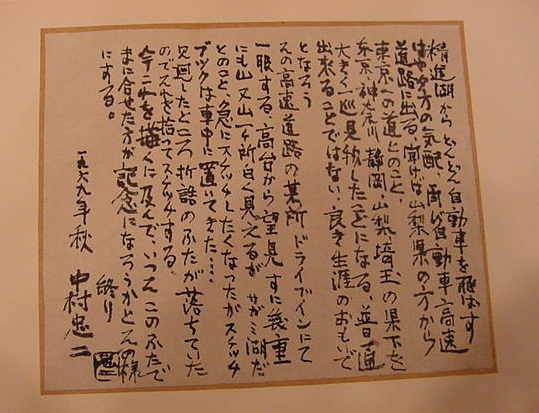 精進湖からどんどん自動車を飛ばす
はや夕方の気配、再び自動車高速
道路に出る、聞けば山梨県の方から
東京への道とのこと、
東京、神奈川、静岡、山梨、埼玉の県下を
大きく巡見物したことになる、普通
出来ることではない、良き生涯のおもいで
となろう
えの高速道路の某所ドライブインにて
一服する、高台から望見するに幾重
にも山又山一ヶ所白く見えるがサガミ湖だ
とのこと、急にスケッチしたくなったがスケッチ
ブックは車中に置いてきた…
見回したところ折詰のふたが落ちていた
のでそれを拾ってスケッチする、
今これを描くに及んで、いっそこのふたで
まに合せた方が記念になろうかとその様
にする。
終り
一九六九年秋 中村忠二